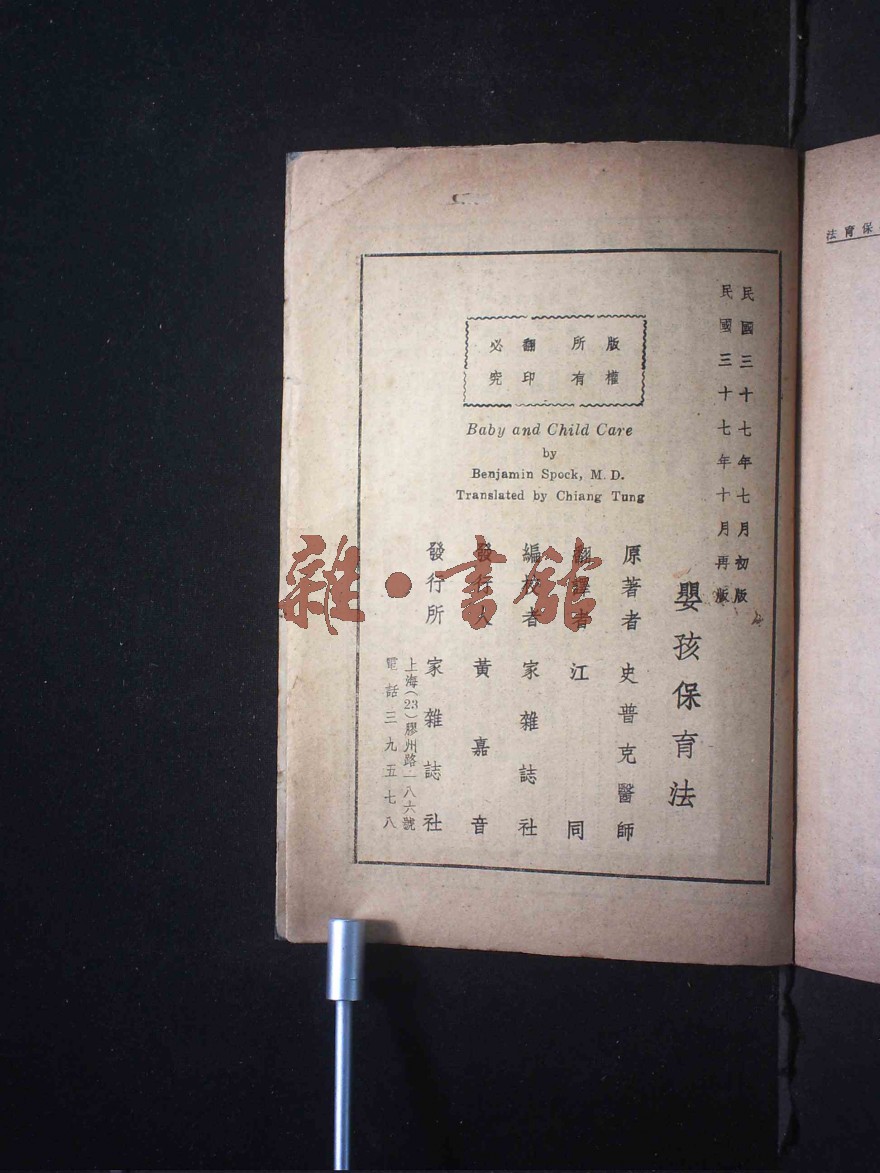 民國三十七年七月初版
民國三十七年十月再版
嬰孩保育法
版權所有
翻印必究
Baby and Child Care
by
Benjamin Spock, M. D.
Translated by Chiang Tung
原著者 史普克醫師
翻譯者 江同
編校者 家雜誌社
發行人 黃嘉音
發行所 家雜誌社
上海(23)膠州路一八六號
電話三九五七八
雜·書館
保育法